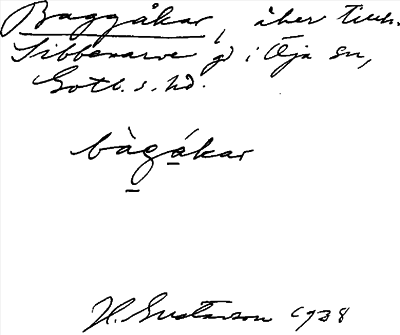 Baggåkar, åker till h.
Sibbenarve gd i Öja sn,
Gotl. s. hd.
bàgåkar
H. Gustavson 1938